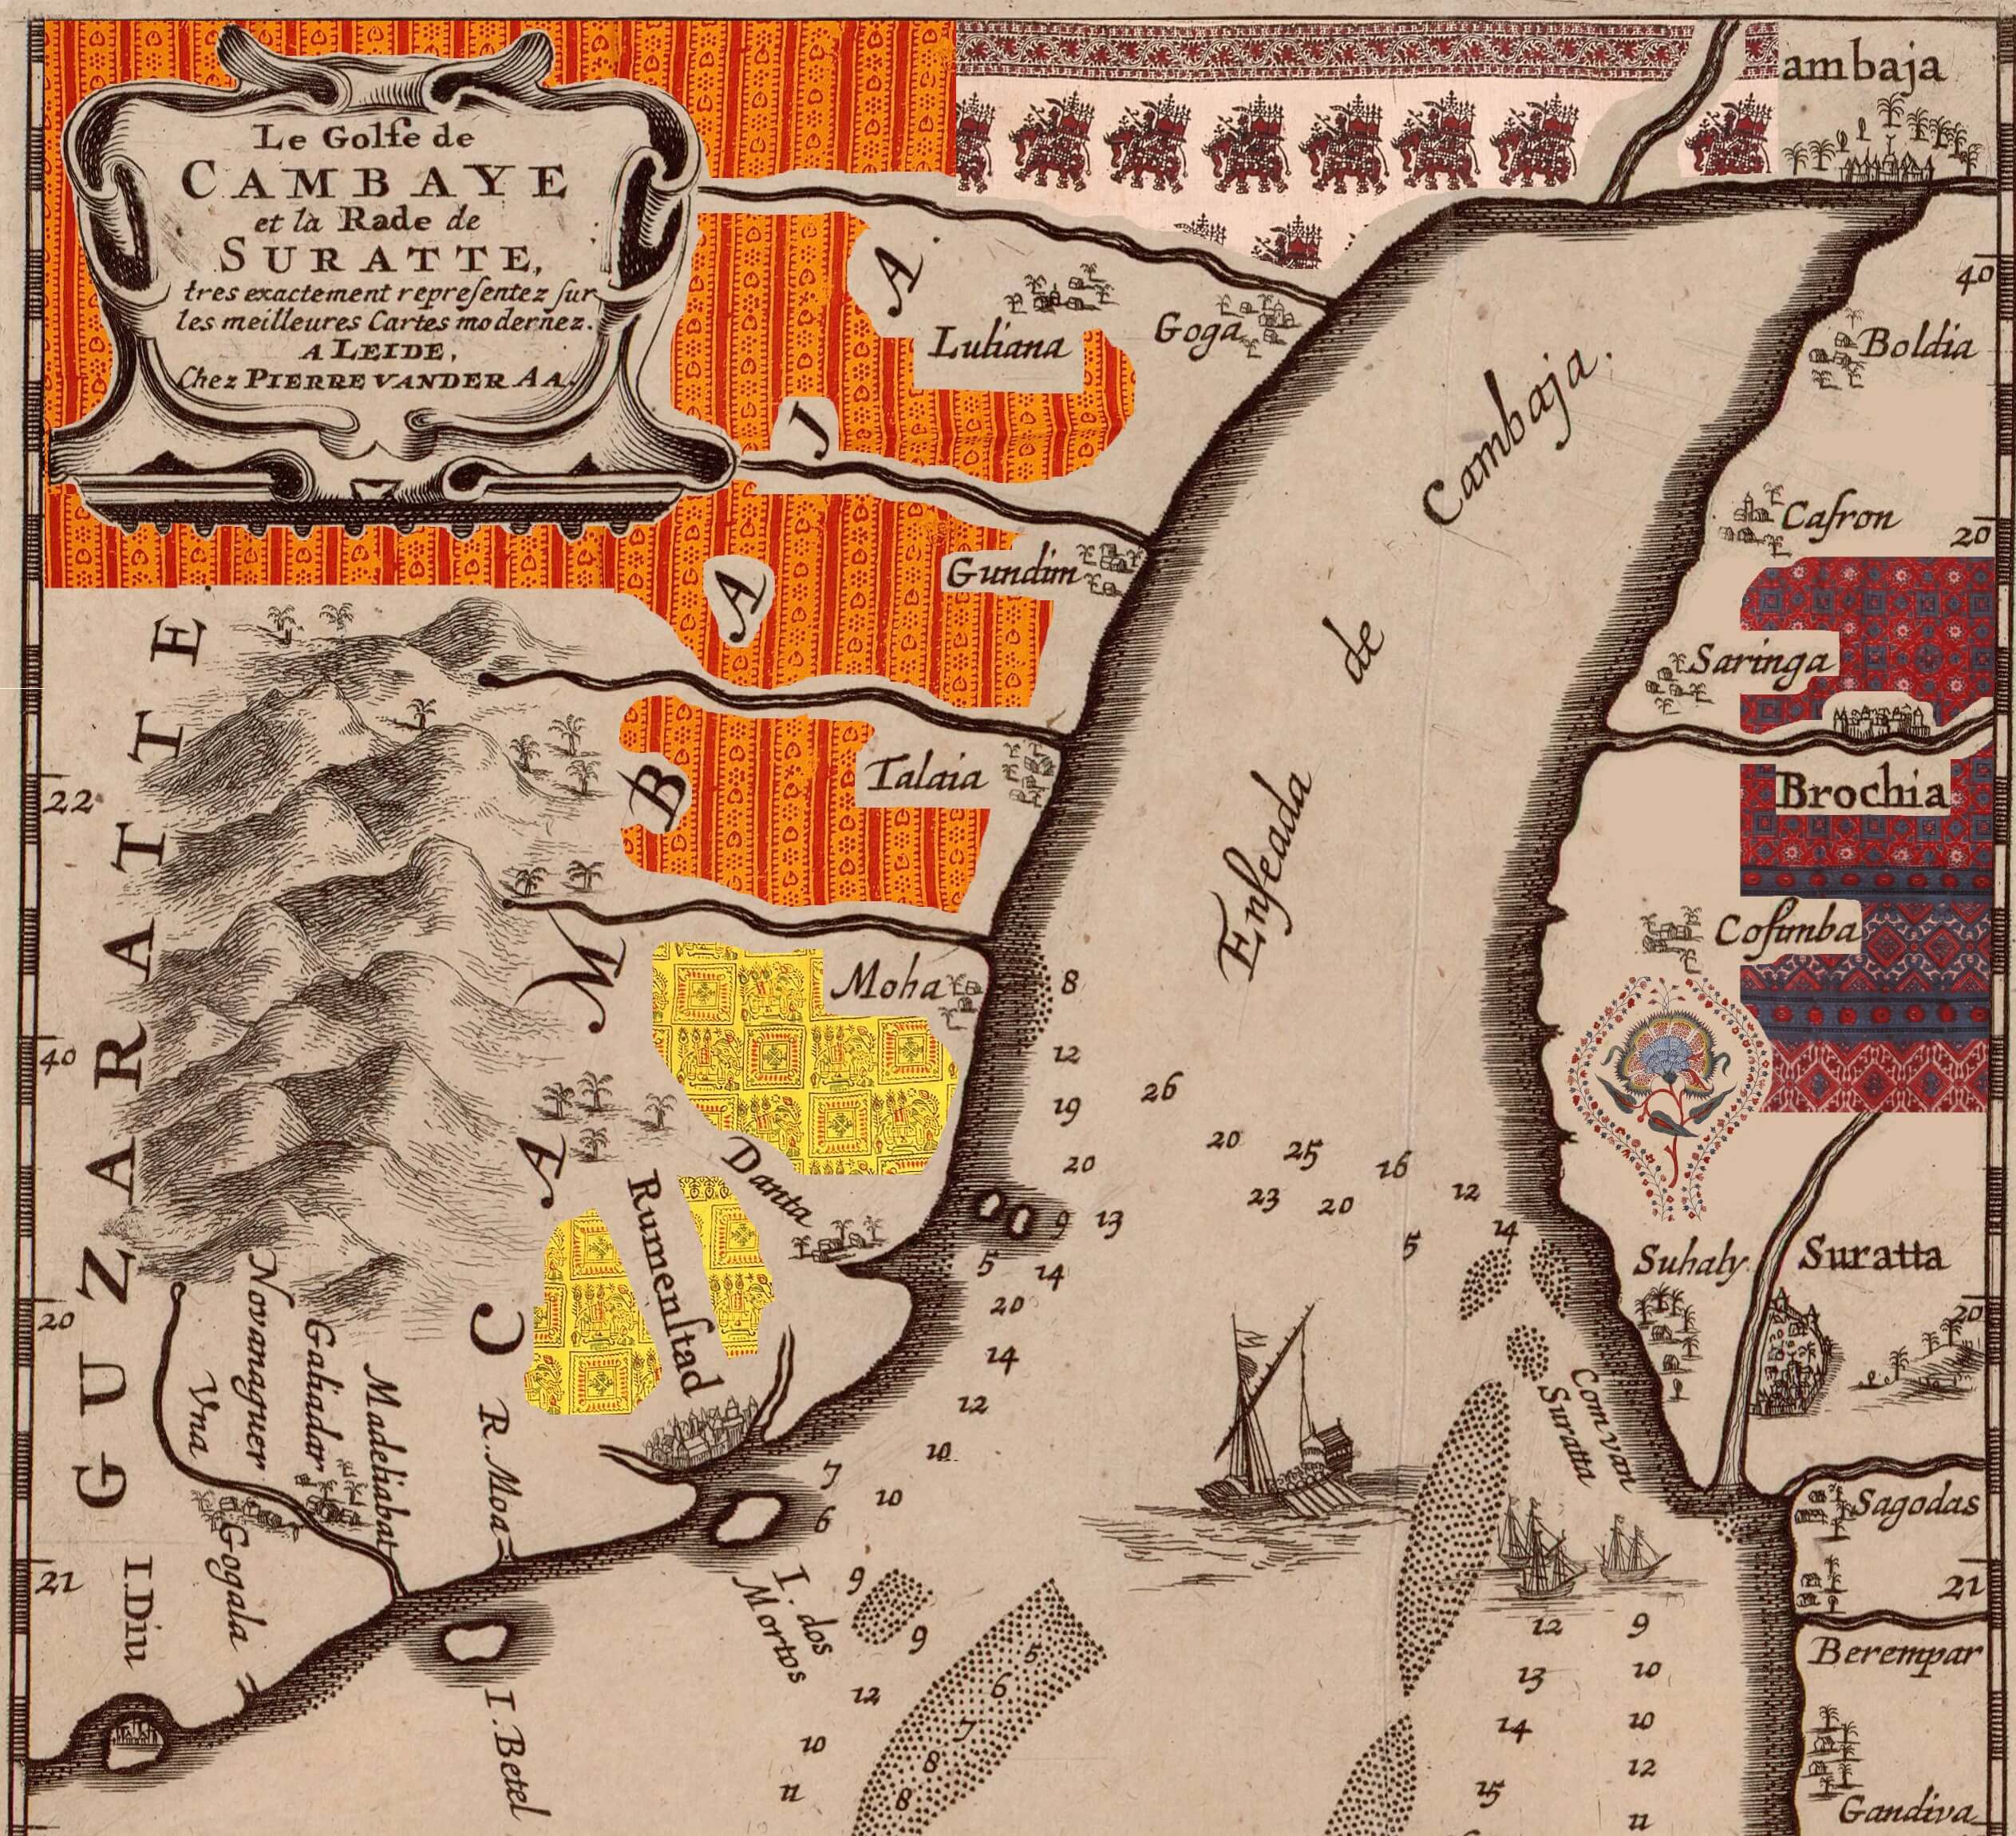 Le Golfe de
CAMBAYE
et la Rade de
SURATTE,
tres exactement representez sur
les meilleures Cartes modernez.
A LEIDE,
Chez PIERRE VANDER AA.
ambaja
40
Boldia
Luliana
Goga
Cambaja.
Cafron
20
Gundim
de
Saringa
GUZARATTE
CAMBAJA
Talaia
22
Brochia
Enseada
Cosimba
Moha
8
12
40
19
26
20
20
25
16
23
20
12
Danta
Rumenstad
9
13
14
5
5
14
Suhaly
Suratta
20
20
20
14
12
10
Novanaguer
Galiadar
Madeliabat
Vna
R. Moa
Com van
Suratta
7
10
6
Sagodas
21
21
Gogala
I. Diu
I. dos
Mortos
9
9
5
6
7
8
8
12
10
11
12
9
13
10
14
10
12
15
11
Berempar
I. Betel
Gandiva